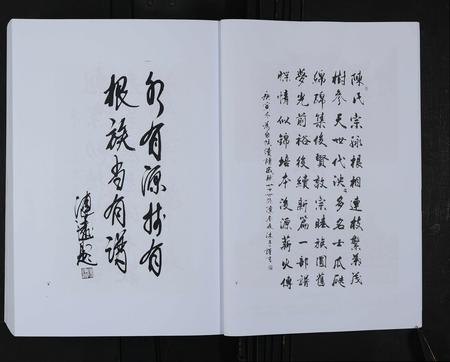 水有源树有
根族当有谱
陳氏宗脉根相連枝繁葉茂
樹參天世代泱泱多名士瓜瓞
綿綿集後賢敦宗睦族圓舊
夢光前裕後續新篇一部譜
牒情似錦培本溯源薪火傳